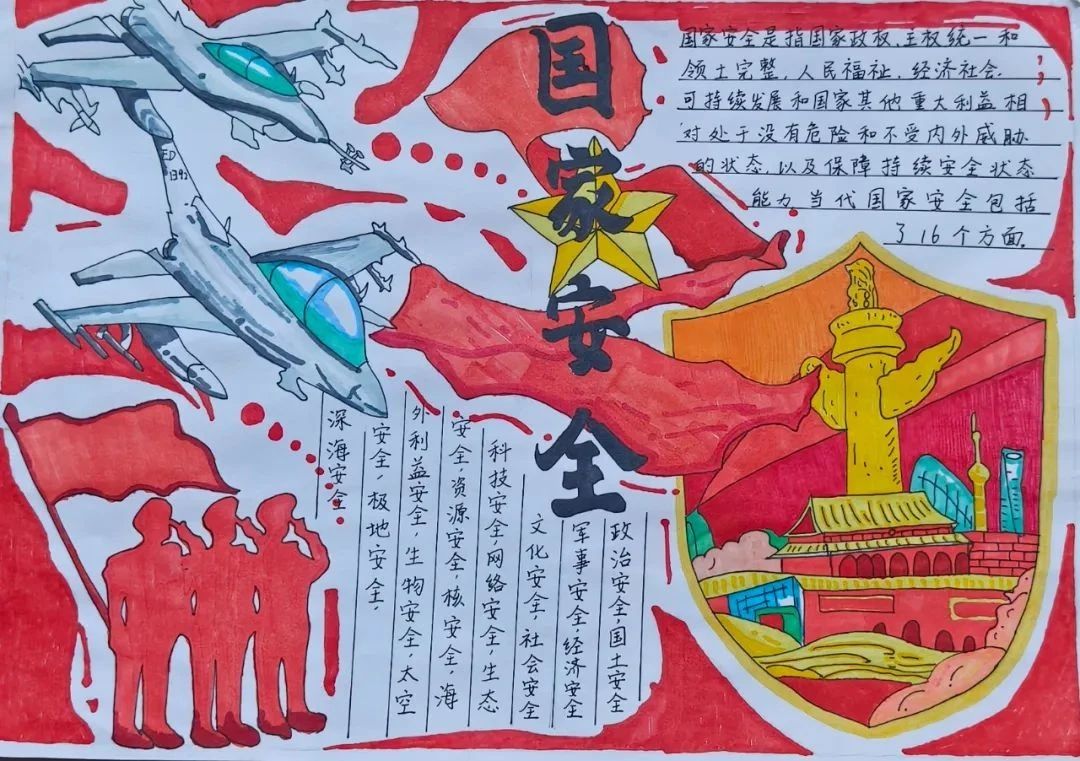 国家安全
国家安全是指国家政权、主权统一和
领土完整、人民福祉、经济社会
可持续发展和国家其他重大利益相
对处于没有危险和不受内外威胁
的状态，以及保障持续安全状态
能力，当代国家安全包括
了16个方面。
政治安全，国土安全
军事安全，经济安全
文化安全，社会安全
科技安全，网络安全，生态
安全，资源安全，核安全，海
外利益安全，生物安全，太空
安全，极地安全，
深海安全